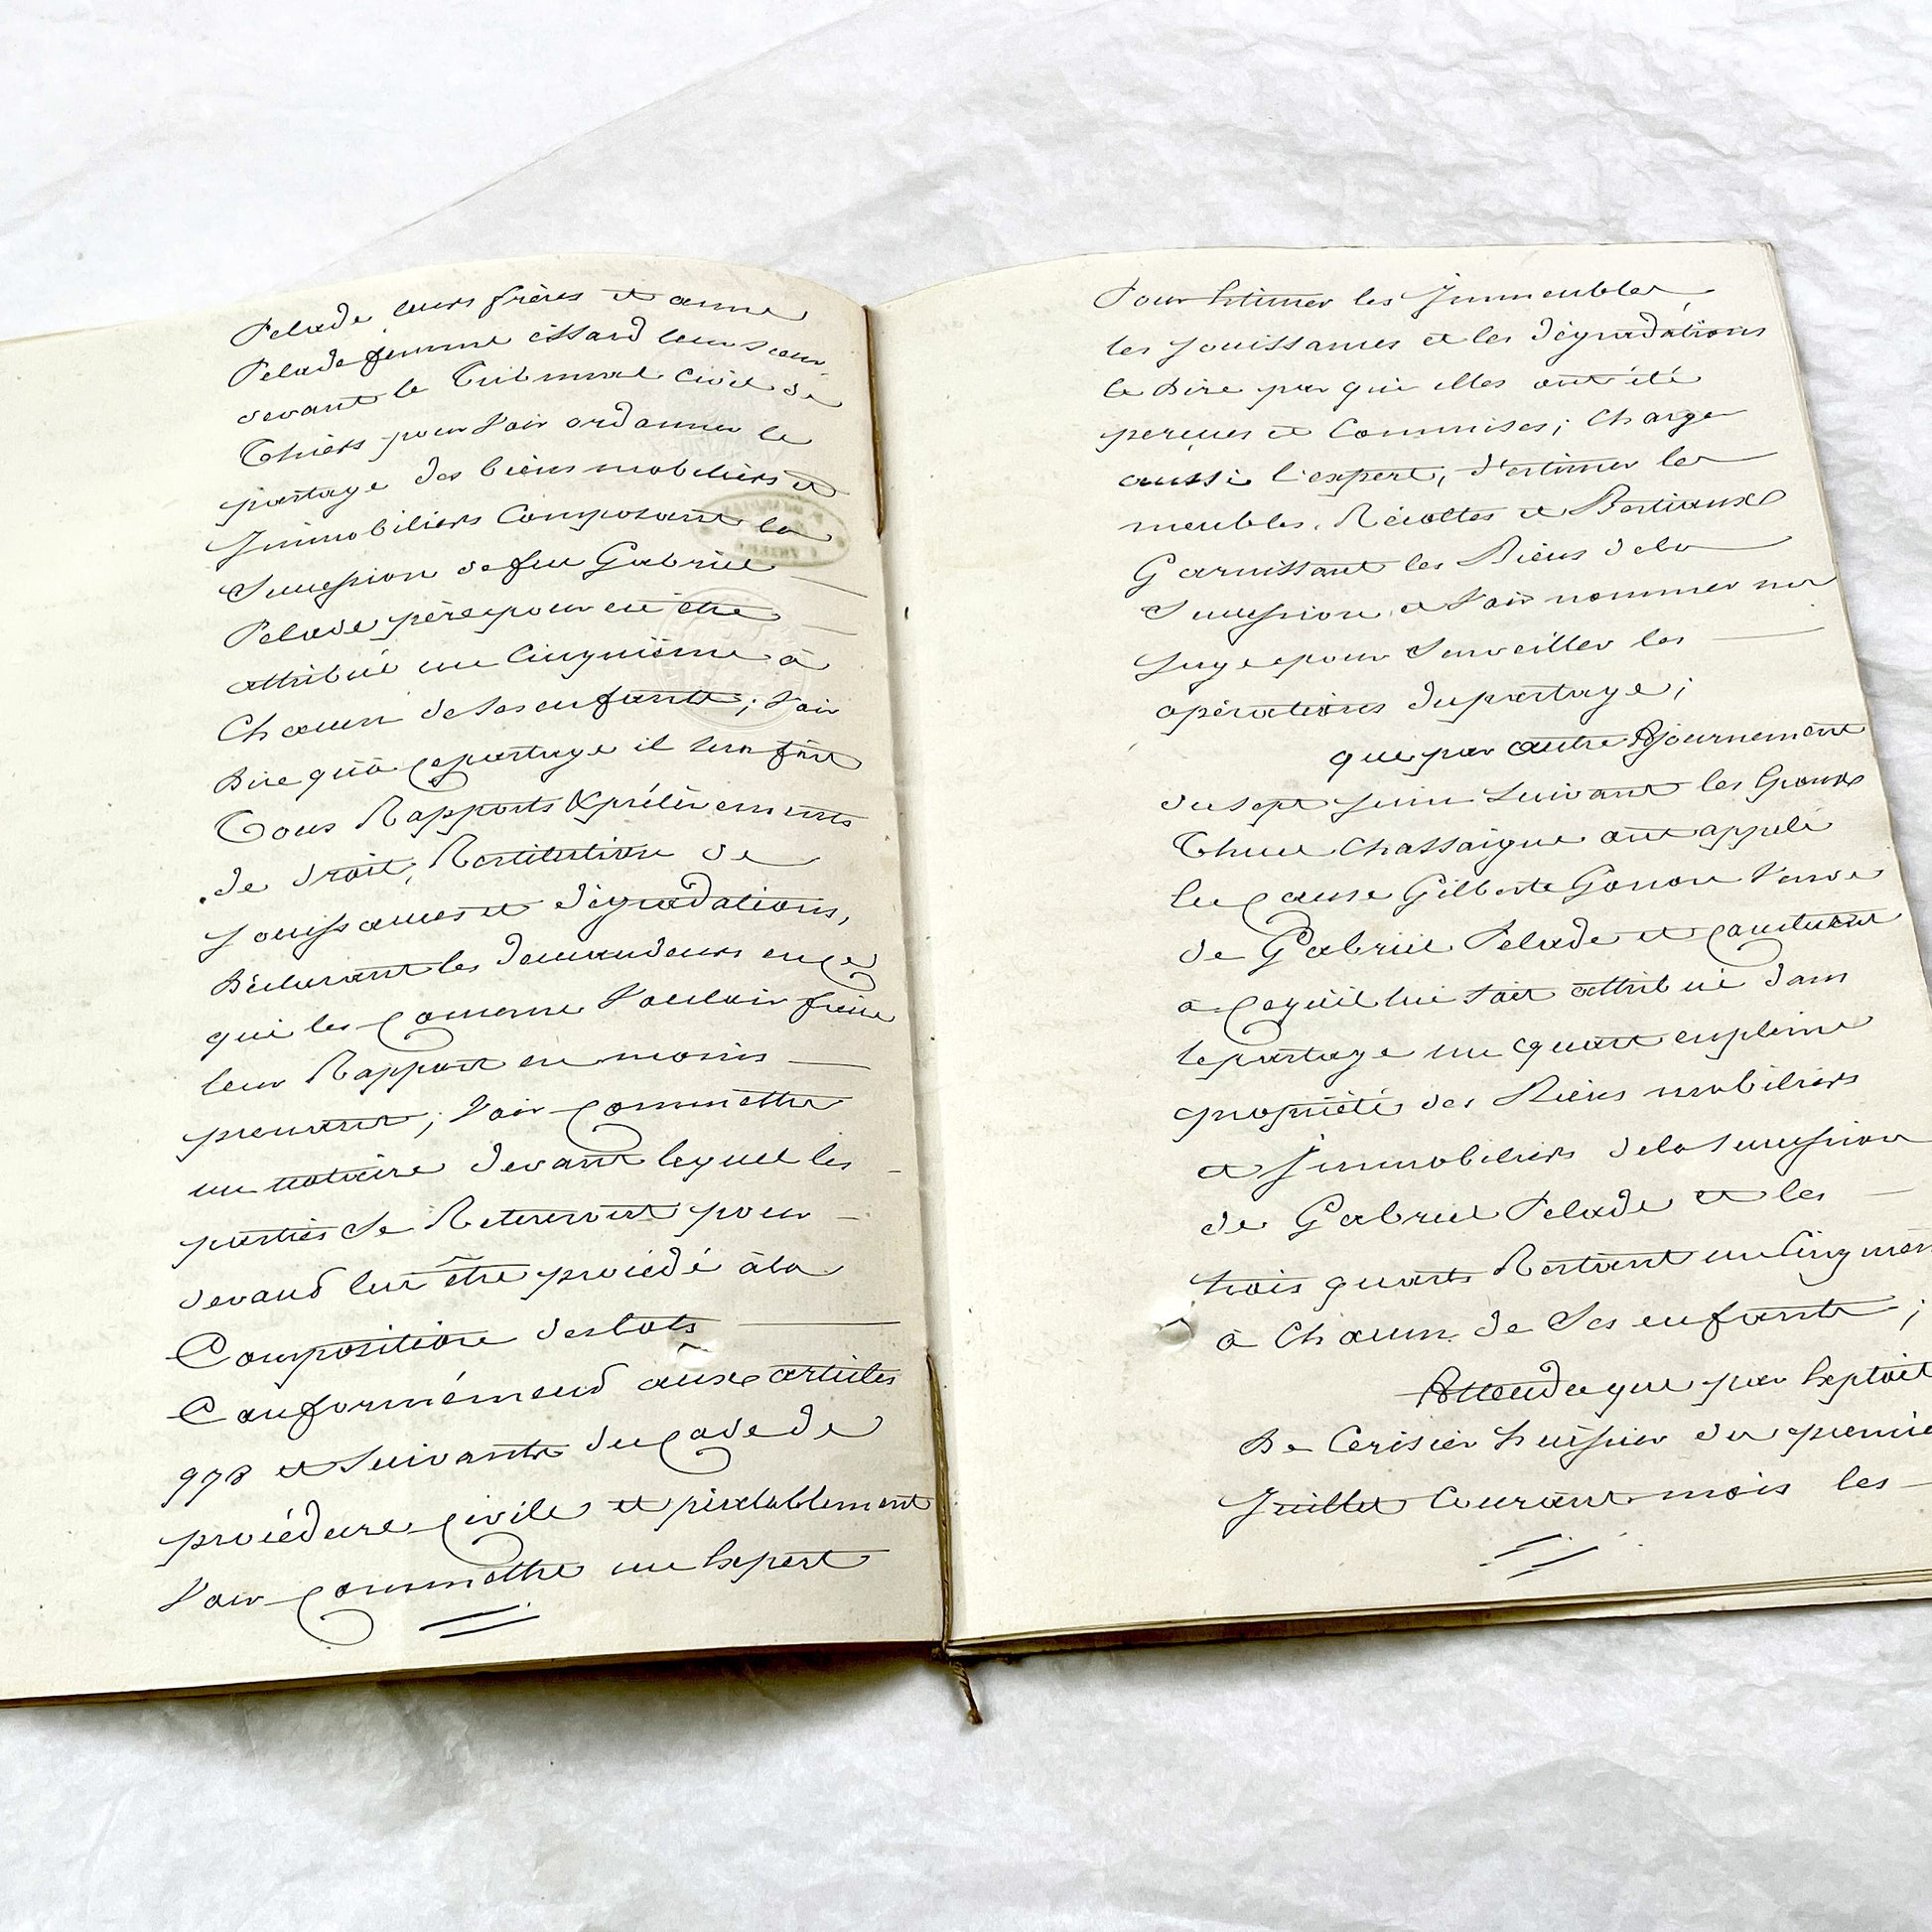 Pelade leurs frères et anne
Pelade femme essard leur sœur,
devant le Tribunal Civil de
Thiers pour Voir ordonner le
partage des biens mobiliers et
Immobiliers Composant la
Succession de feu Gabriel
Pelade père pour en être
attribué un Cinquième à
Chacun de ses enfants ; Voir
Dire qu'à ce partage il sera fait
Tous Rapports & prélèvements
de droit, Restitution de
jouissances et dégradations,
Déclarant les demandeurs en ce
qui les concerne Vouloir faire
leur Rapport en moins
prenant ; Voir commettre
un notaire devant lequel les
parties se Retireront pour
devand lui être procédé à la
Composition des lots
Conformémend aux articles
978 et Suivants du code de
procédure civile et préalablement
Voir commettre un Expert
Pour Estimer les Immeubles,
les jouissances et les dégradations
le Dire par qui elles ont été
perçues et Commises ; Charger
aussi l'expert, d'estimer les
meubles, Récoltes et Bestiaux
Garnissant les Biens de la
Succession et Voir nommer un
Juge pour Surveiller les
opérations du partage ;
que par autre Ajournement
du sept juin Suivant les Epoux
Chassaigne ont appelé
en cause Gilberte Gonon Veuve
de Gabriel Pelade et conclurent
à ce qu'il lui soit attribué dans
le partage un quart en pleine
propriété des Biens mobiliers
et Immobiliers de la Succession
de Gabriel Pelade et les
trois quarts Restant un Cinquièm
à Chacun de Ses enfants ;
Attendu que par Exploit
De Cerisier huissier du premie
Juillet Courant mois les